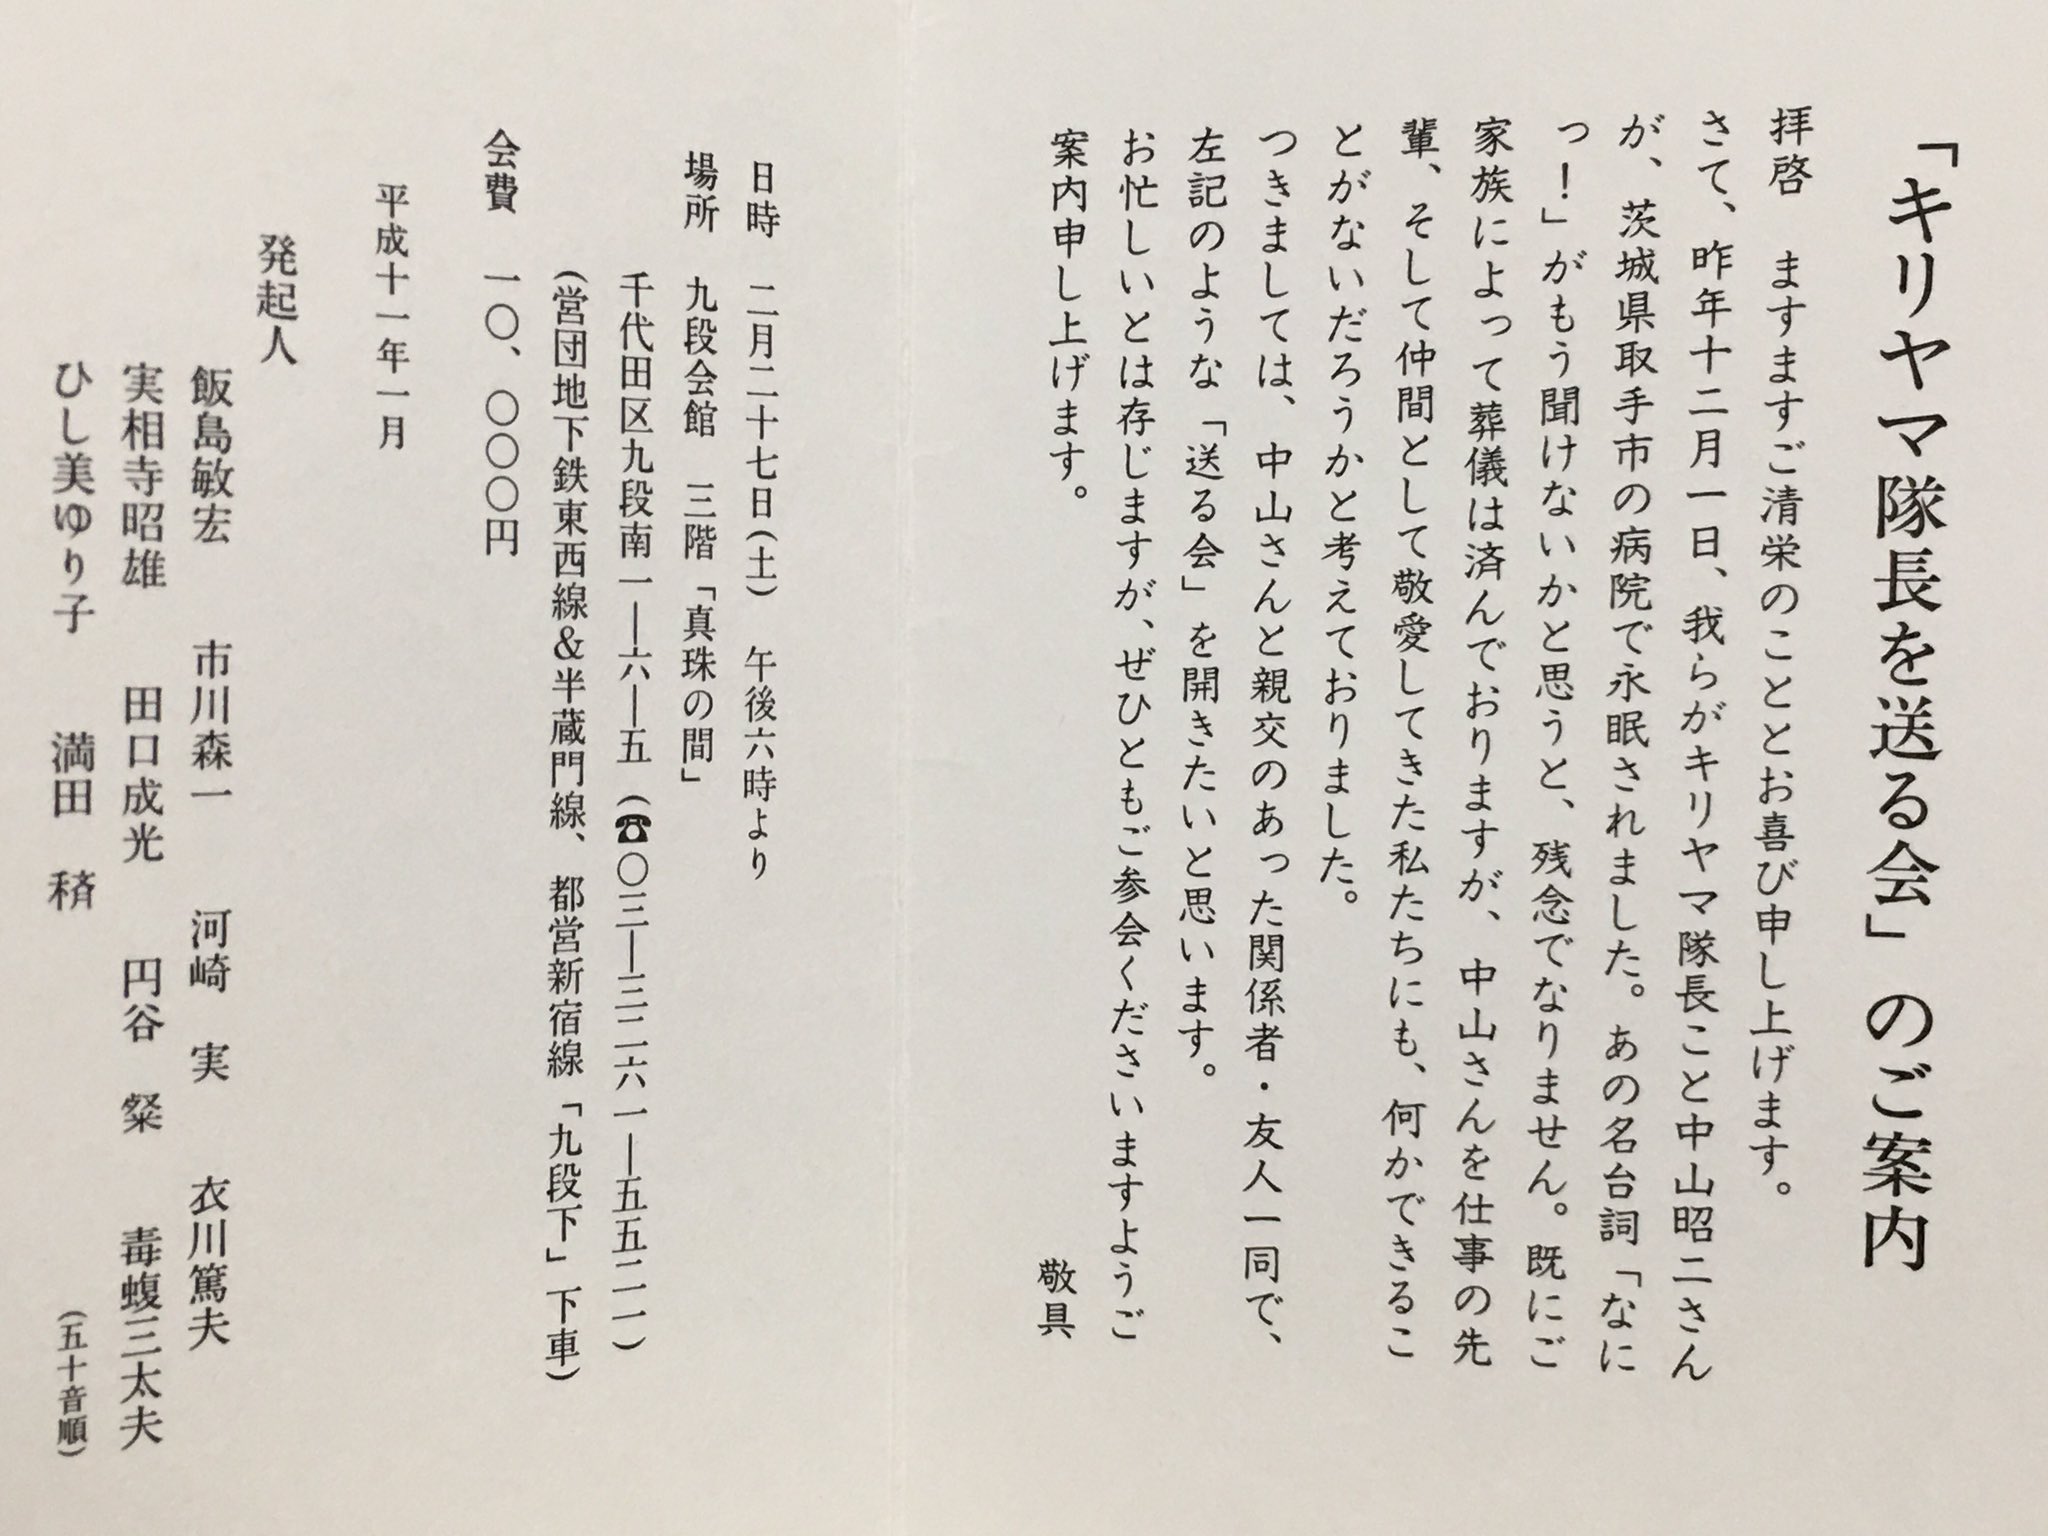 「キリヤマ隊長を送る会」のご案内
拝啓　ますますご清栄のこととお喜び申し上げます。
さて、昨年十二月一日、我らがキリヤマ隊長こと中山昭二さん
が、茨城県取手市の病院で永眠されました。あの名台詞「なに
っ！」がもう聞けないかと思うと、残念でなりません。既にご
家族によって葬儀は済んでおりますが、中山さんを仕事の先
輩、そして仲間として敬愛してきた私たちにも、何かできるこ
とがないだろうかと考えておりました。
つきましては、中山さんと親交のあった関係者・友人一同で、
左記のような「送る会」を開きたいと思います。
お忙しいとは存じますが、ぜひともご参会くださいますようご
案内申し上げます。
敬具
日時　二月二十七日(土)　午後六時より
場所　九段会館　三階「真珠の間」
千代田区九段南一―六―五 (☎〇三―三二六一―五五二一)
(営団地下鉄東西線&半蔵門線、都営新宿線「九段下」下車)
会費　一〇、〇〇〇円
平成十一年一月
発起人
飯島敏宏　市川森一　河崎　実　衣川篤夫
実相寺昭雄　田口成光　円谷　粲　毒蝮三太夫
ひし美ゆり子　満田　𥡴　(五十音順)